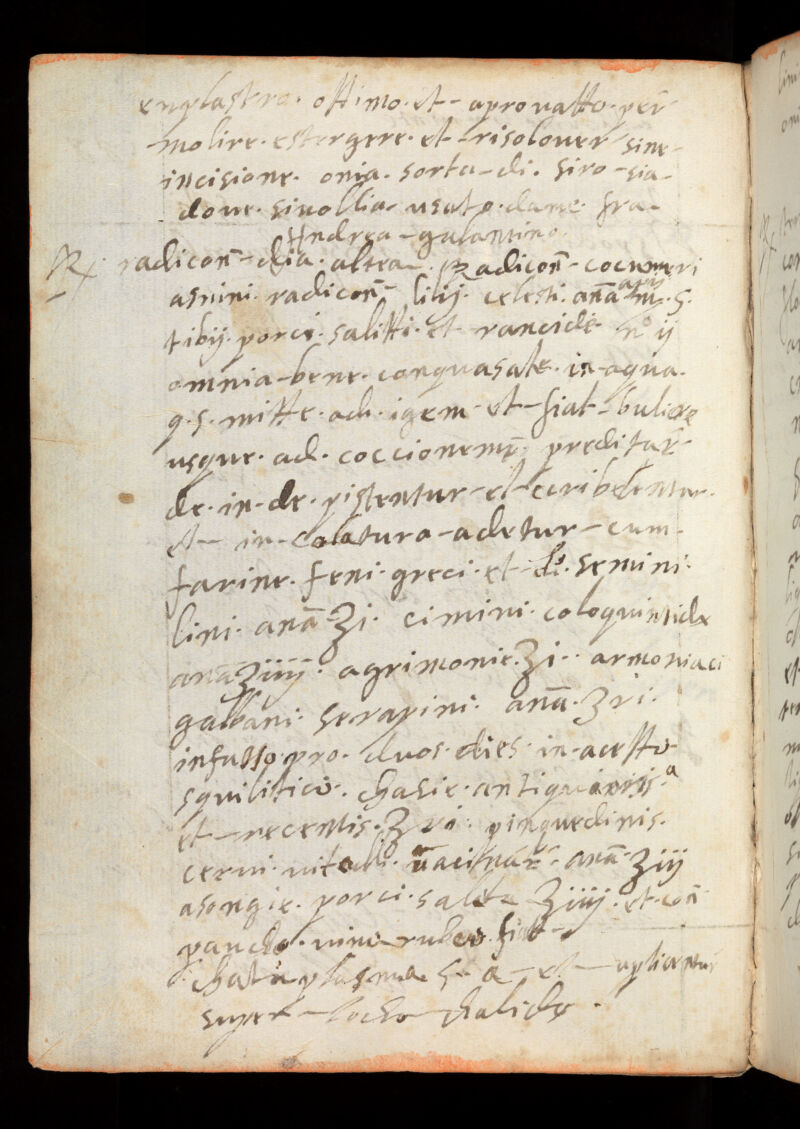 enplastro. ottimo. et - aprouatto. per
molire. estergere. et - risoluer sine
incisione. onia. sorta - di. siro - sia -
doue. siuollia - usato. dame. fra -
Andrea - galantino.
℞. radicon̄ - dia. altea - radicon̄ - cocumeri
asnini. radicon̄ - lilij. celesti. anā ℥. 5.
tibij. porci. salitti. et - rancide nº ij
omnia - bene. conquasate. in - aqua.
q. s. mitte. ad. igem - et - fiat - bulire
usque. ad. coccionem. preditar̄ -
de. in - de. pistentur - et - cribelentur.
et - in - colatura - adetur - cum -
farine. feni. greci. et - di. semini.
lini. anā ʒi. cimini. coloquintide
anā ʒiiij. agrimonie. ʒi.. armoniaci
galbani. serapini. anā. ʒvi.
infusso. pro. duos. dies. in - acetto
squilitico. chasie. antiquissis.ᵃ
et - recentis. ʒvi. pinguedinis.
cerui. vitelli. anā - ʒiij
asongie. porci. salite ʒiiij. et. con̄
paucho. vino - rubeo. fiat -
chataplasma s. a - et - apliantur
super - locho chalido.